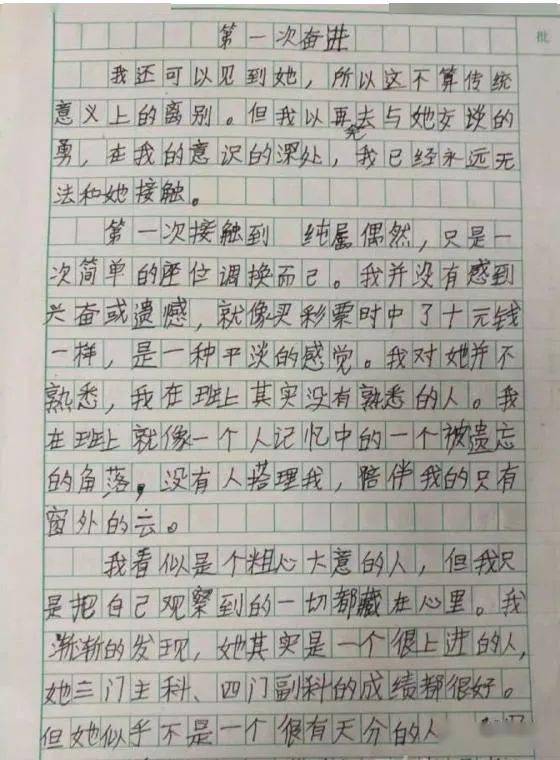 第一次奋进
批
我还可以见到她，所以这不算传统
意义上的离别。但我以再去与她交谈的
勇，在我的意识的深处，我已经永远无
法和她接触。
第一次接触到 纯属偶然，只是一
次简单的座位调换而已。我并没有感到
兴奋或遗憾，就像买彩票时中了十元钱
一样，是一种平淡的感觉。我对她并不
熟悉，我在班上其实没有熟悉的人。我
在班上就像一个人记忆中的一个被遗忘
的角落，没有人搭理我，陪伴我的只有
窗外的云。
我看似是个粗心大意的人，但我只
是把自己观察到的一切都藏在心里。我
渐渐的发现，她其实是一个很上进的人，
她三门主科、四门副科的成绩都很好。
但她似乎不是一个很有天分的人